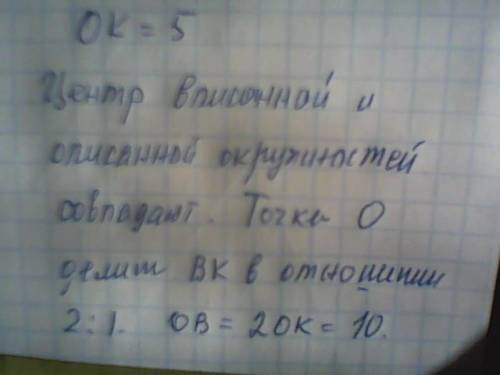 OK = 5
Центр вписанной и
описанной окружностей
совпадают. Точка O
делит BK в отношении
2:1. OB = 2OK = 10.